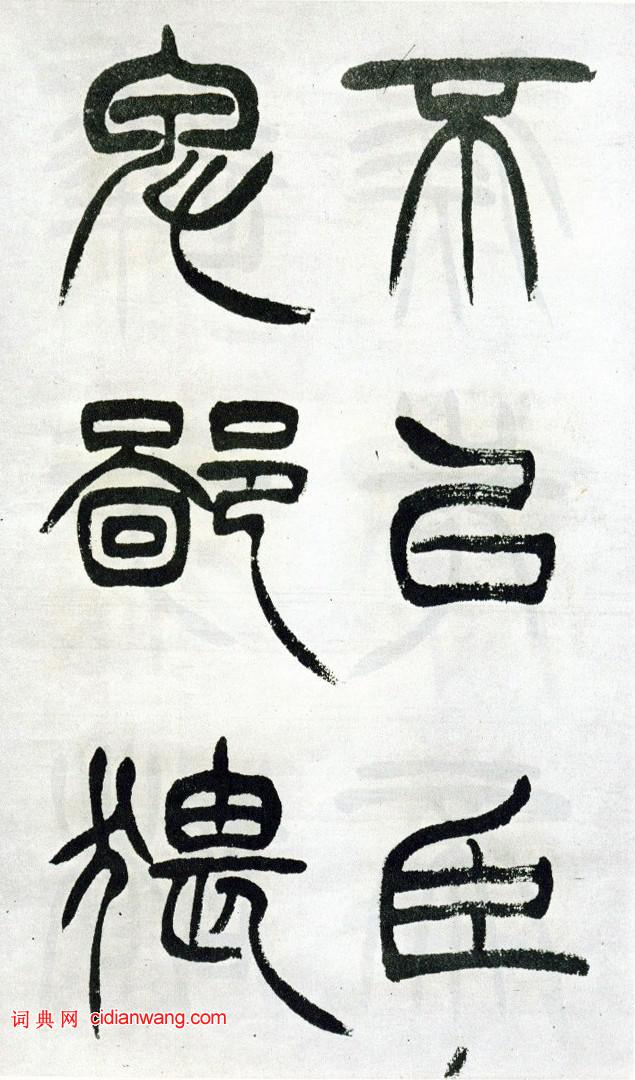 不以臣
卑鄙猥
词典网 cidianwang.com